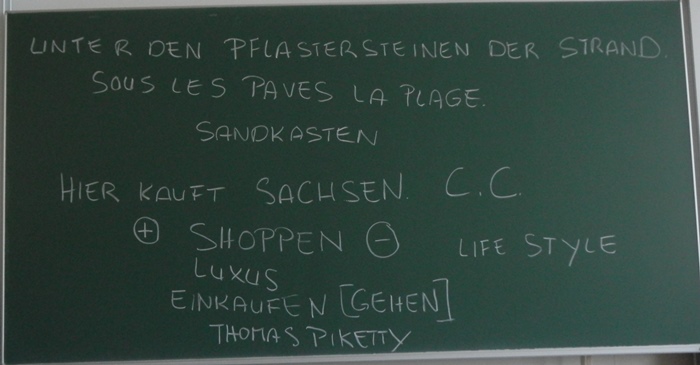 UNTER DEN PFLASTERSTEINEN DER STRAND.
SOUS LES PAVES LA PLAGE.
SANDKASTEN
HIER KAUFT SACHSEN. C.C.
⊕ SHOPPEN ⊖ LIFE STYLE
LUXUS
EINKAUFEN [GEHEN]
THOMAS PIKETTY